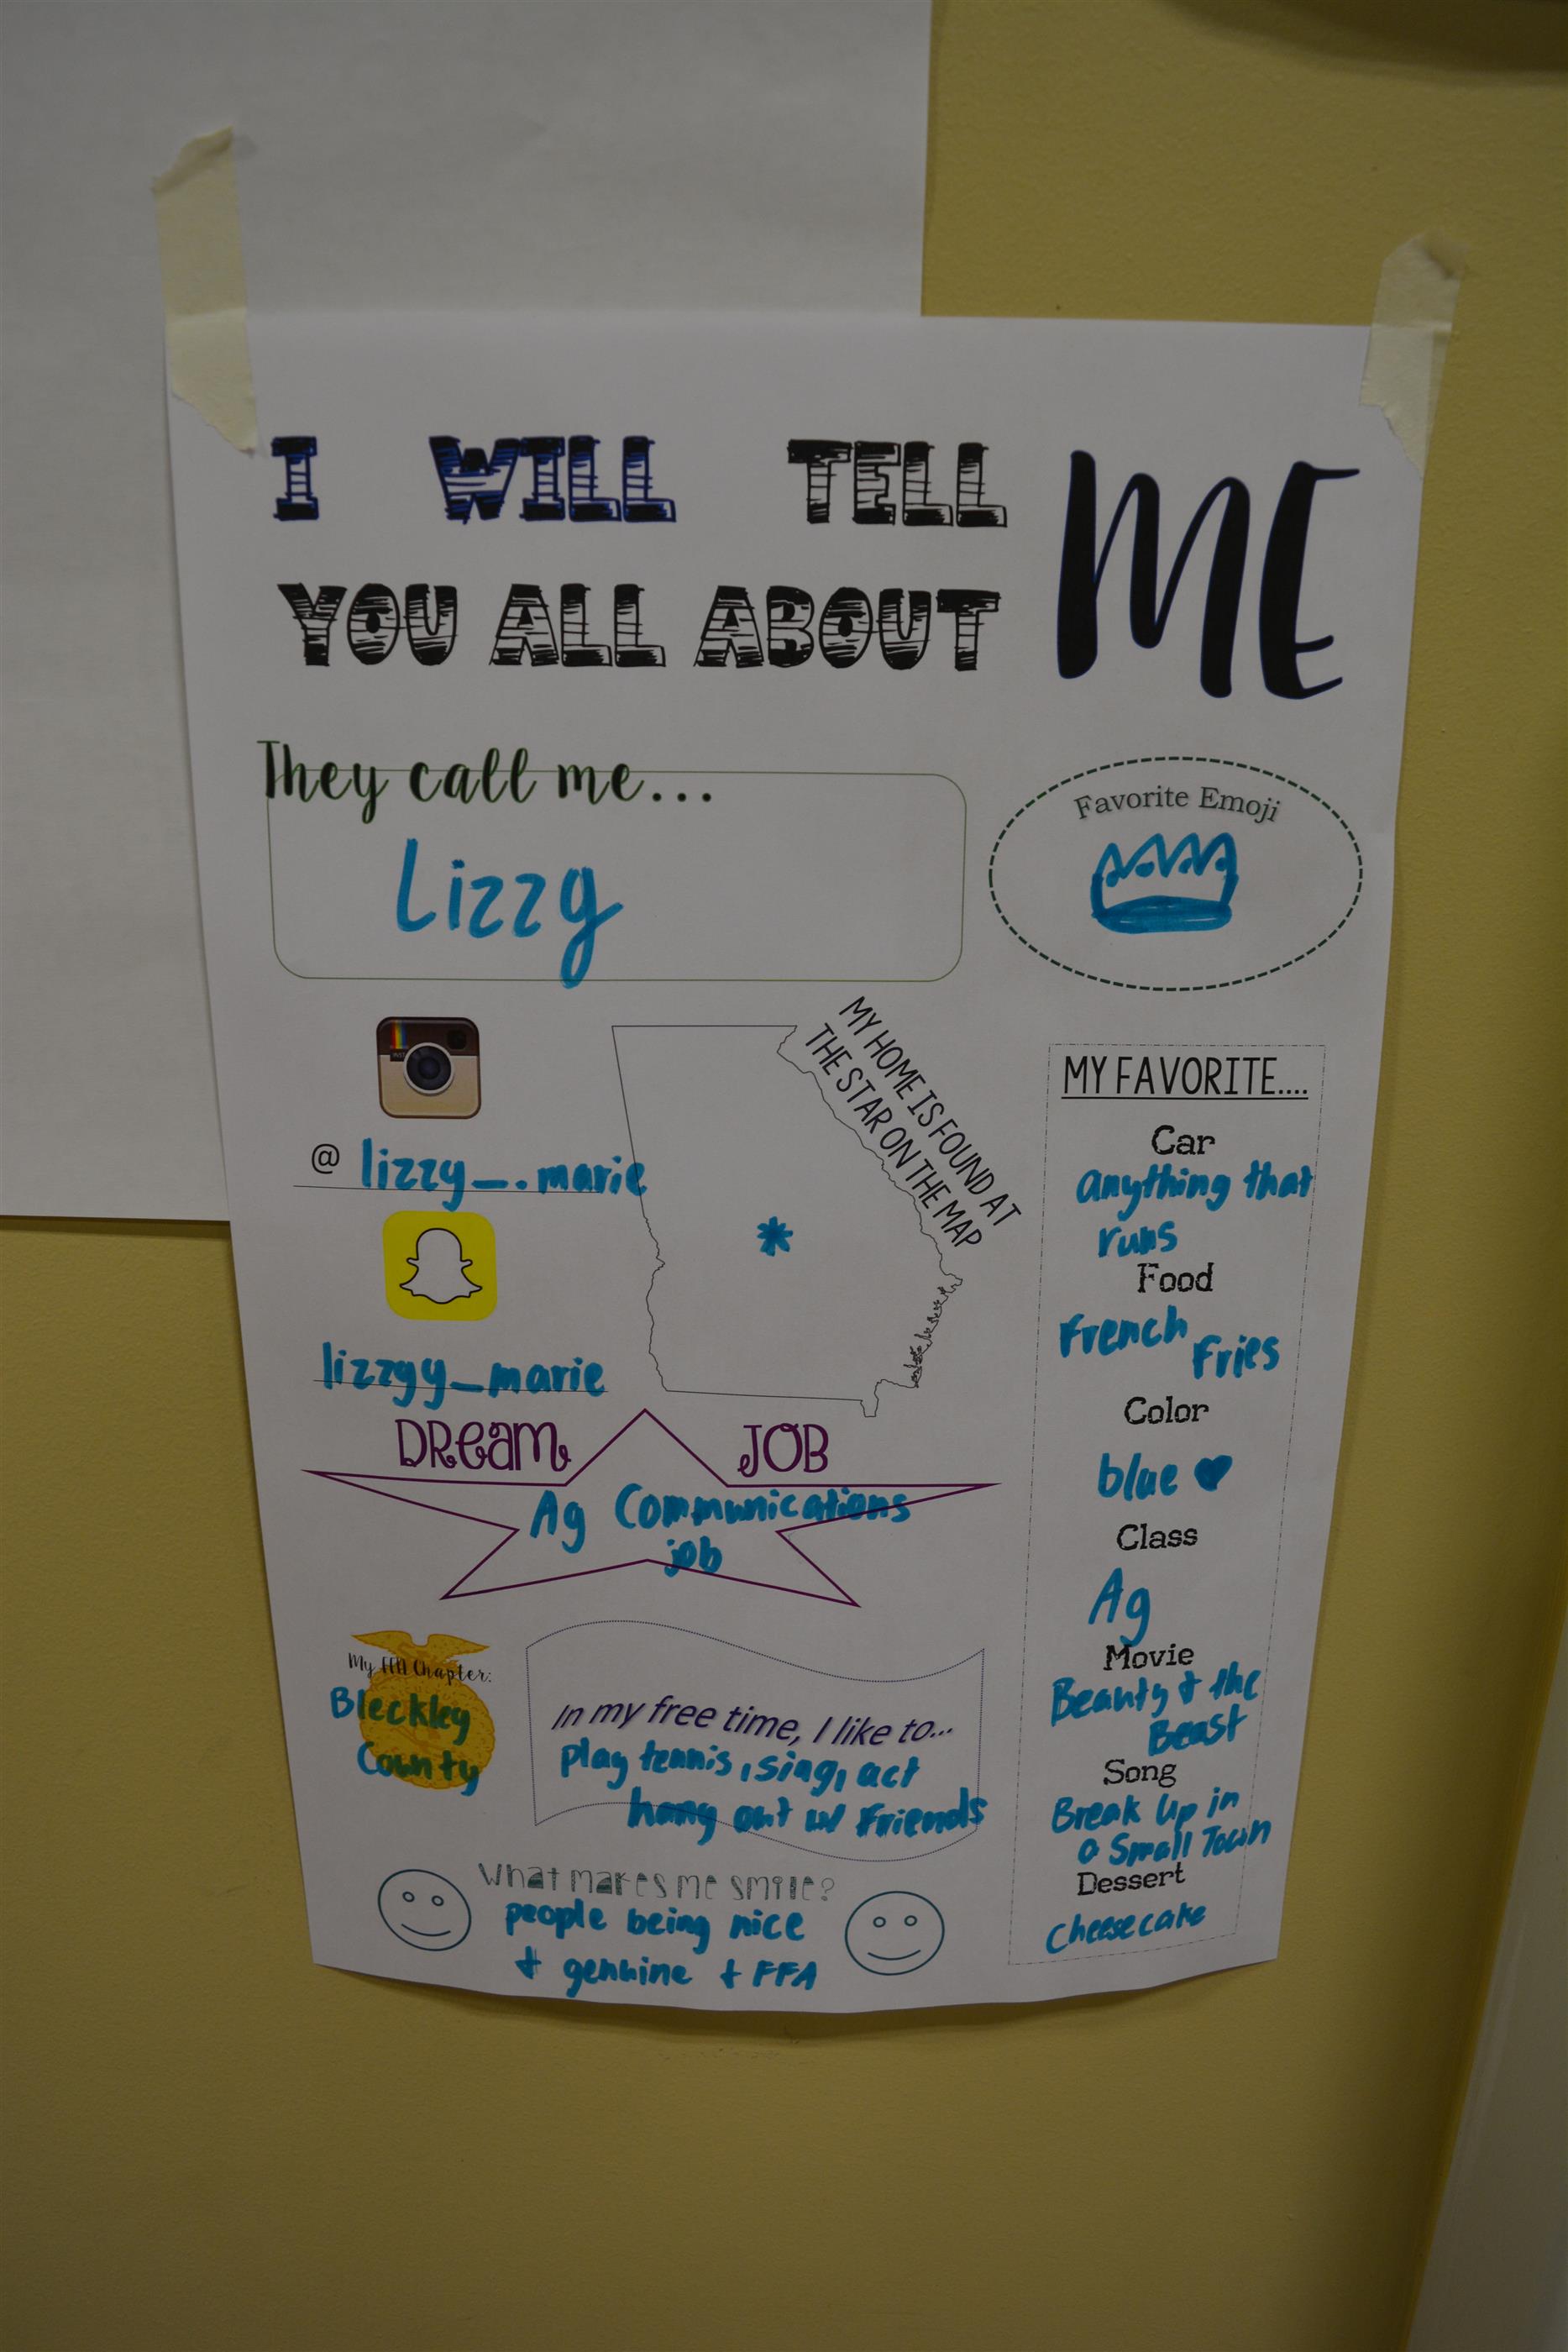 I WILL TELL
YOU ALL ABOUT
ME
They call me...
Lizzy
Favorite Emoji
@ lizzy_.marie
lizzyy_marie
MY HOME IS FOUND AT
THE STAR ON THE MAP
DREAM JOB
Ag Communications
job
My FFA Chapter:
Bleckley
County
In my free time, I like to...
play tennis, sing, act
hang out w/ friends
What makes me smile?
people being nice
+ genuine + FFA
MY FAVORITE....
Car
anything that
runs
Food
French
Fries
Color
blue
Class
Ag
Movie
Beauty + the
Beast
Song
Break Up in
a Small Town
Dessert
Cheesecake